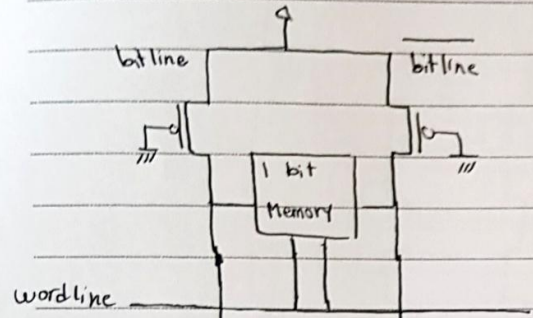 bitline
bitline
1 bit
Memory
wordline